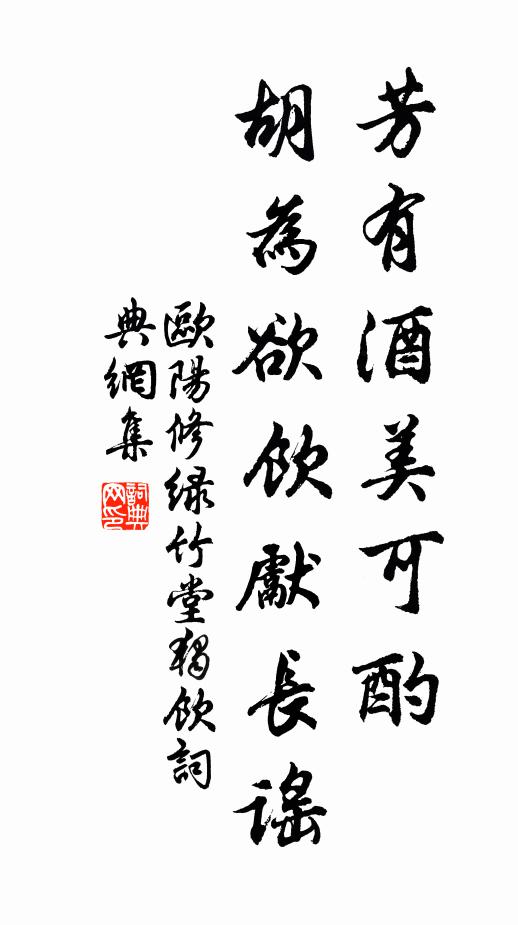 芳有酒美可酌
胡為欲飲獻長謠
歐陽修綠竹堂獨飲詞
典網集
詞典网印